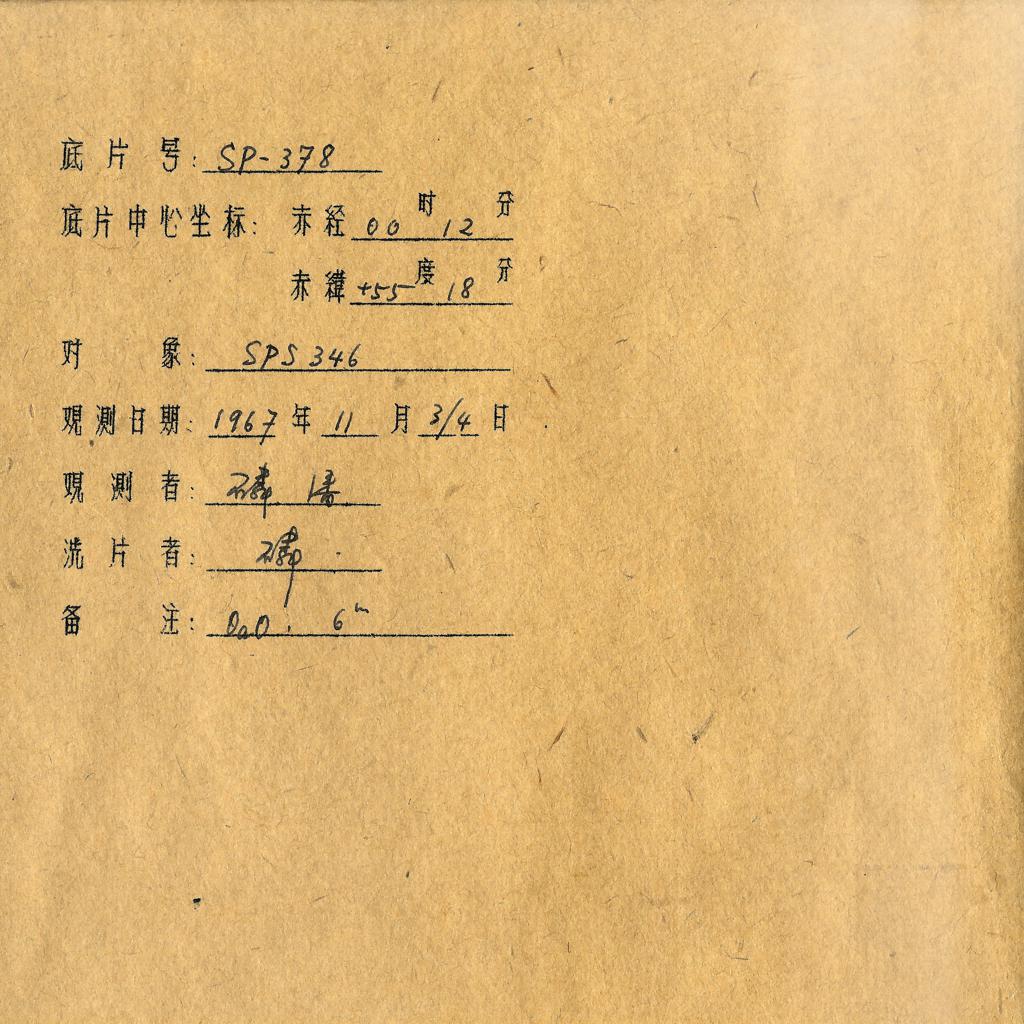 底片号: SP-378
底片中心坐标: 赤经 00 时 12 分
赤緯 +55 度 18 分
对象: SPS 346
观测日期: 1967 年 11 月 3/4 日
观测者: 磷 潘
洗片者: 磷
备注: OaO. 6ᵐ